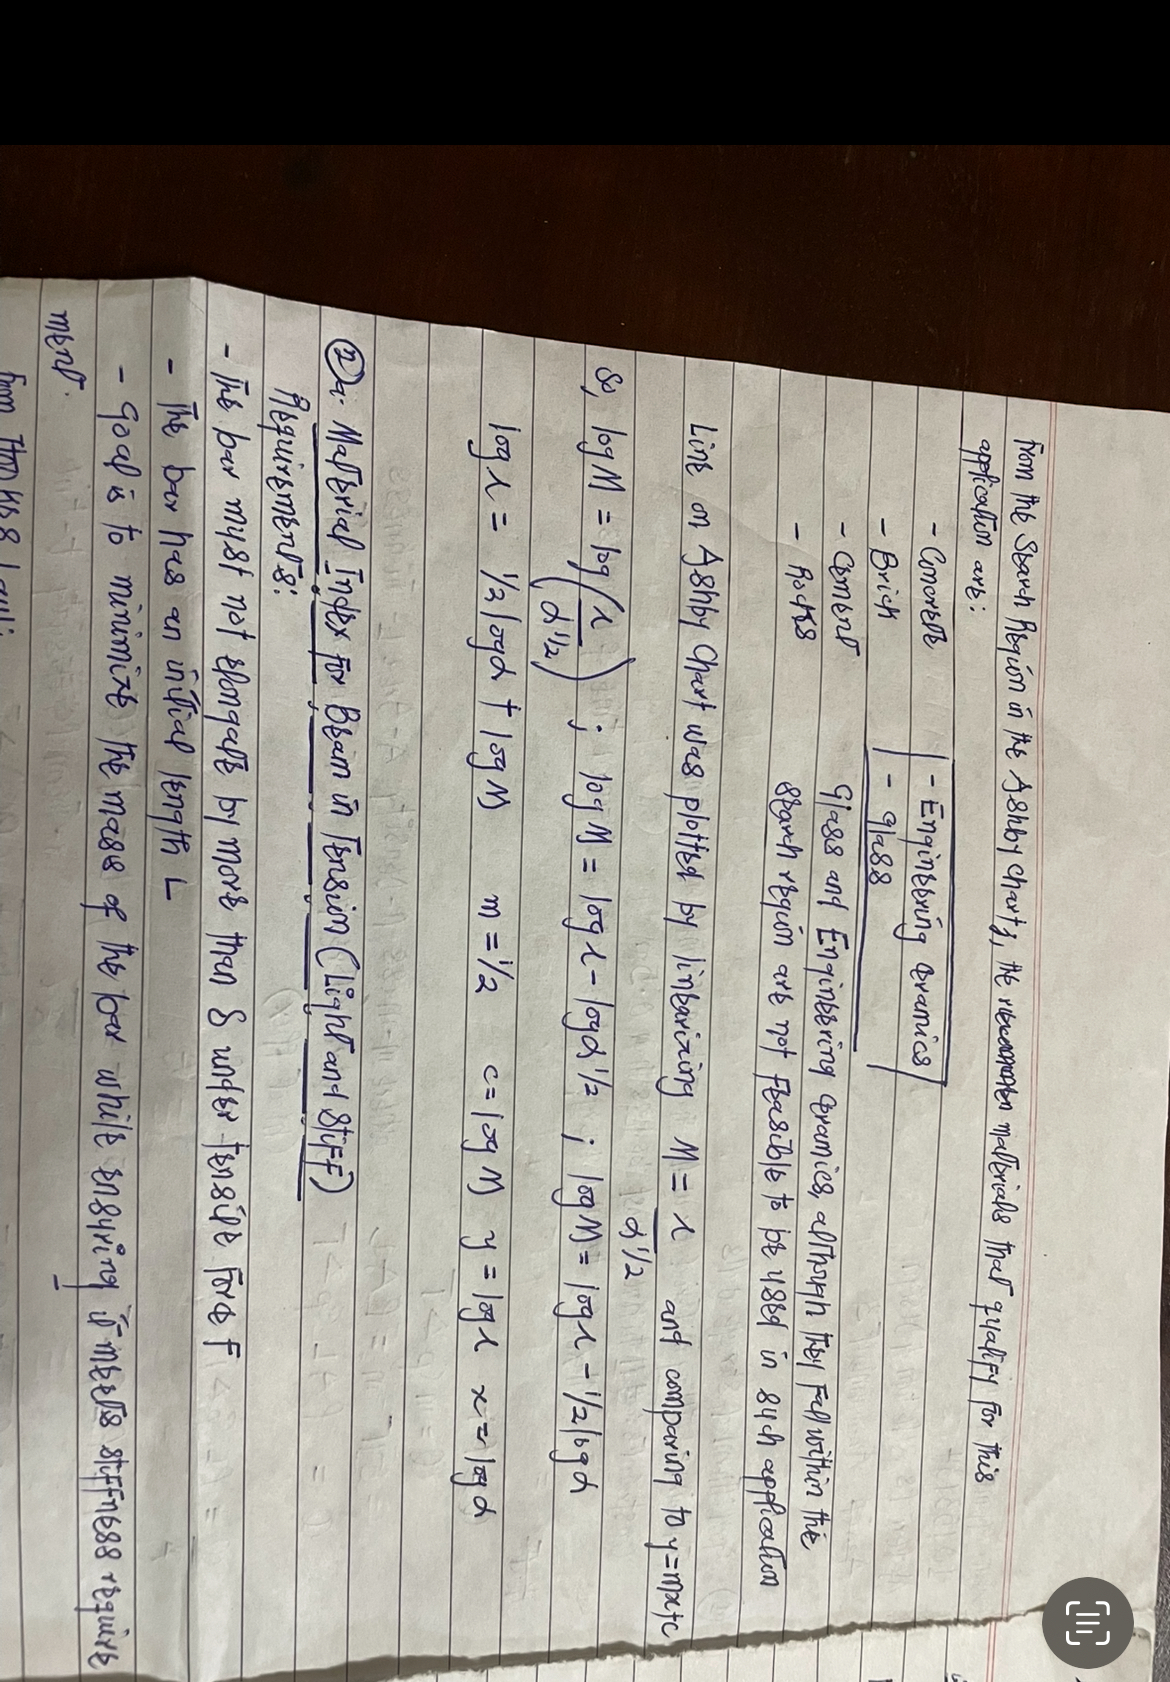 From the Search Region in the Ashby charts, the materials that qualify for this
application are:
- Concrete - Engineering ceramics
- Brick - glass
- Cement Glass and Engineering ceramics, although they fall within the
- Rocks search region are not feasible to be used in such application
Line on Ashby Chart was plotted by linearizing M = λ/α^1/2 and comparing to y=mx+c
So, log M = log(λ/α^1/2) ; log M = log λ - log α^1/2 ; log M = log λ - 1/2 log α
log λ = 1/2 log α + log M m = 1/2 c = log M y = log λ x = log α
② Material Index for Beam in Tension (Light and Stiff)
Requirements:
- The bar must not elongate by more than δ under tensile force F
- The bar has an initial length L
- Goal is to minimize the mass of the bar while ensuring it meets stiffness require
ment.